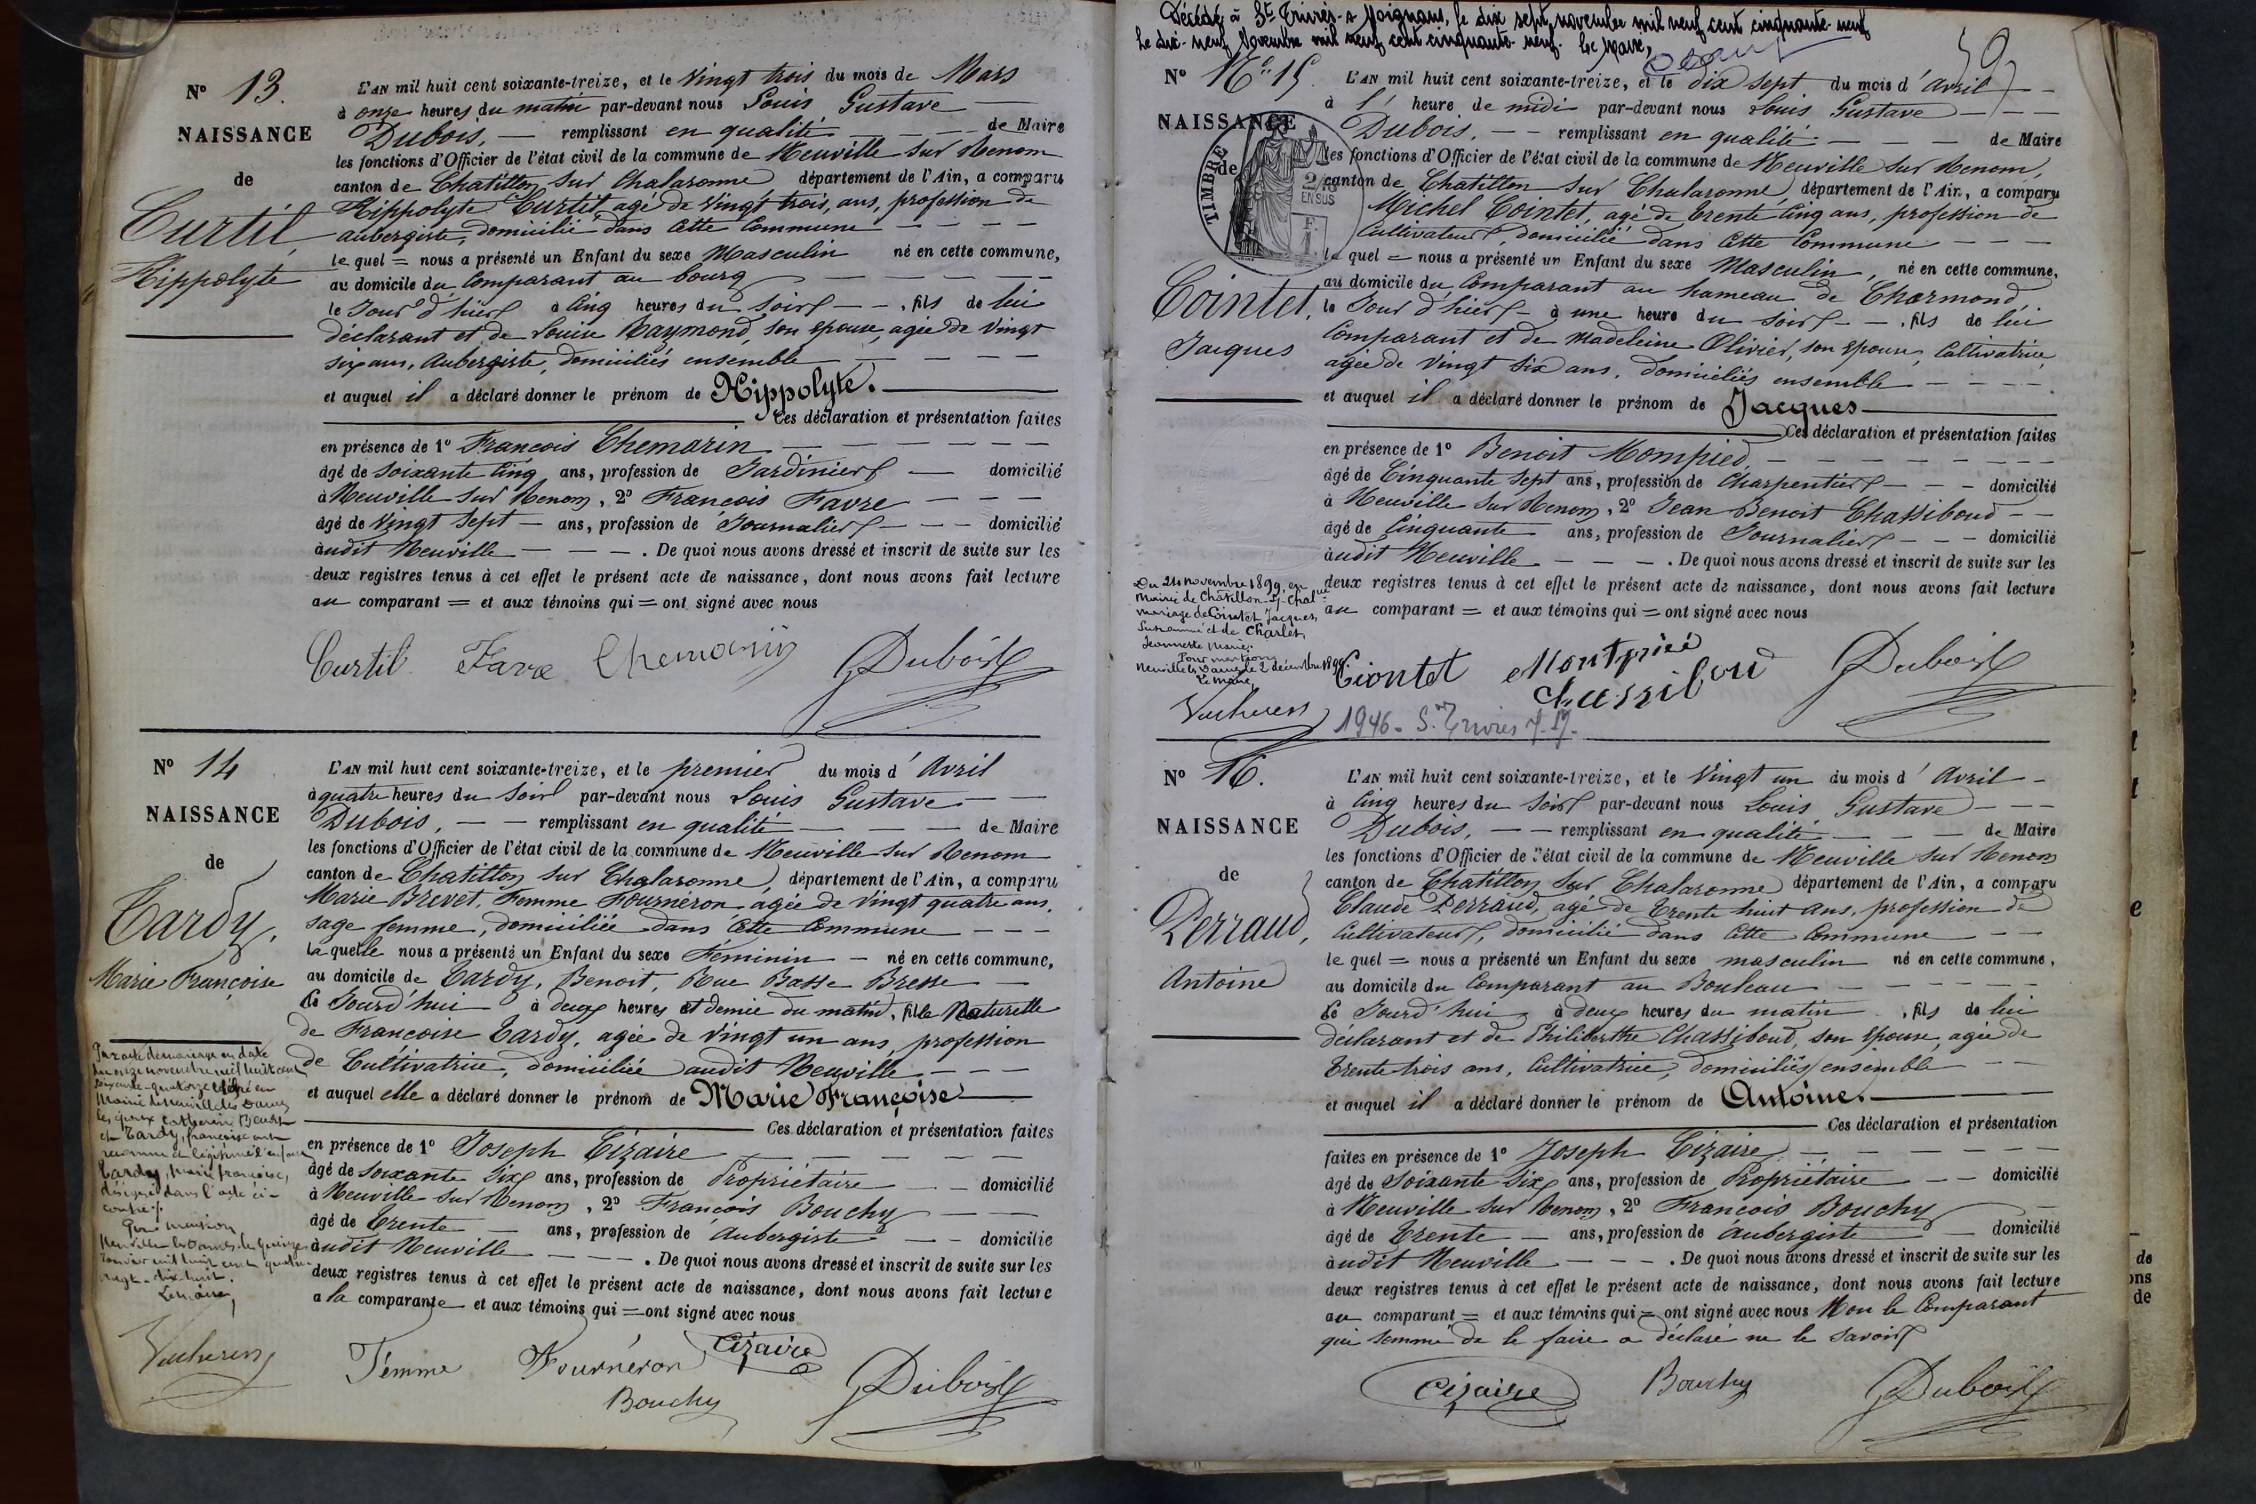 N° 13.
NAISSANCE
de
Curtil
Hippolyte
L'AN mil huit cent soixante-treize, et le Vingt trois du mois de Mars
à onze heures du matin par-devant nous Louis Gustave
Dubois, remplissant en qualité de Maire
les fonctions d'Officier de l'état civil de la commune de Neuville sur Renom
canton de Chatillon sur Chalaronne département de l'Ain, a comparu
Hippolyte Curtil, agé de Vingt trois, ans, profession de
aubergiste, domicilié dans cette Commune
le quel = nous a présenté un Enfant du sexe Masculin né en cette commune,
au domicile du Comparant au bourg
le Jour d'hier à Cinq heures du Soir, fils de lui
déclarant et de Louise Raymond, son épouse, agée de Vingt
six ans, Aubergiste, domiciliés ensemble
et auquel il a déclaré donner le prénom de Hippolyte.
Ces déclaration et présentation faites
en présence de 1° François Chemarin
âgé de soixante cinq ans, profession de Jardinier domicilié
à Neuville sur Renom, 2° François Favre
âgé de Vingt Sept ans, profession de Journalier domicilié
àudit Neuville. De quoi nous avons dressé et inscrit de suite sur les
deux registres tenus à cet effet le présent acte de naissance, dont nous avons fait lecture
au comparant = et aux témoins qui = ont signé avec nous
Curtil Favre Chemarin Dubois
N° 14
NAISSANCE
de
Tardy,
Marie Françoise
L'AN mil huit cent soixante-treize, et le premier du mois d'Avril
à quatre heures du Soir par-devant nous Louis Gustave
Dubois, remplissant en qualité de Maire
les fonctions d'Officier de l'état civil de la commune de Neuville sur Renom
canton de Chatillon sur Chalaronne, département de l'Ain, a comparu
Marie Brevet, Femme Fournéron agée de Vingt quatre ans,
sage femme, domiciliée dans cette Commune
la quelle nous a présenté un Enfant du sexe Féminin né en cette commune,
au domicile de Tardy, Benoit, Rue Basse Bresse
le Jourd'hui à deux heures et demie du matin, fille Naturelle
de Françoise Tardy, agée de Vingt un ans, profession
de Cultivatrice, domiciliée audit Neuville
et auquel elle a déclaré donner le prénom de Marie Françoise
Ces déclaration et présentation faites
en présence de 1° Joseph Cizaire
âgé de soixante Six ans, profession de Propriétaire domicilié
à Neuville sur Renom, 2° François Bouchy
âgé de Trente ans, profession de Aubergiste domicilié
àudit Neuville. De quoi nous avons dressé et inscrit de suite sur les
deux registres tenus à cet effet le présent acte de naissance, dont nous avons fait lecture
a la comparante et aux témoins qui = ont signé avec nous
Par acte de mariage en date
du onze novembre mil huit cent
soixante-quatorze célébré en
Mairie de Neuville les Dames
les époux
et Tardy françoise ont
reconnu et légitimé l'enfant
Tardy, Marie françoise,
désigné dans l'acte ci-
contre
Pour mention
Neuville les Dames, le quinze
Janvier mil huit cent quatre-
vingt-dix huit.
Le Maire,
Vucheren
Femme Fournéron Cizaire
Bouchy Dubois
Décédé à St Trivier-s-Moignans, le dix sept novembre mil neuf cent cinquante-neuf
Le dix-neuf Novembre mil neuf cent cinquante-neuf. Le Maire,
59
N° N° 15
NAISSANCE
de
TIMBRE
2/10
EN SUS
Cointet,
Jacques
L'AN mil huit cent soixante-treize, et le dix sept du mois d'Avril
à l'heure de midi par-devant nous Louis Gustave
Dubois, remplissant en qualité de Maire
les fonctions d'Officier de l'état civil de la commune de Neuville sur Renom,
canton de Chatillon sur Chalaronne, département de l'Ain, a comparu
Michel Cointet, agé de Trente Cinq ans, profession de
Cultivateur, domicilié dans cette Commune
le quel = nous a présenté un Enfant du sexe Masculin, né en cette commune,
au domicile du Comparant au hameau de Charmond,
le Jour d'hier à une heure du soir, fils de lui
Comparant et de Madeleine Olivier, son épouse, Cultivatrice,
agée de Vingt Six ans, domiciliés ensemble
et auquel il a déclaré donner le prénom de Jacques
Ces déclaration et présentation faites
en présence de 1° Benoit Mompied
âgé de Cinquante Sept ans, profession de Charpentier domicilié
à Neuville sur Renom, 2° Jean Benoit Chassiboud
âgé de Cinquante ans, profession de Journalier domicilié
àudit Neuville. De quoi nous avons dressé et inscrit de suite sur les
deux registres tenus à cet effet le présent acte de naissance, dont nous avons fait lecture
au comparant = et aux témoins qui = ont signé avec nous
Du 24 novembre 1899, en
Mairie de Châtillon-s/-Chalne
mariage de Cointet Jacques,
susnommé et de Charlet,
Jeannette Marie.
Pour mention
Neuville les Dames, le 2 décembre 1899.
Le Maire,
Vucheren
Ciontet Montpiéé
Chassiboud Dubois
1946 - St Trivier s/-M-
N° 16.
NAISSANCE
de
Perraud,
Antoine
L'AN mil huit cent soixante-treize, et le Vingt un du mois d'Avril
à Cinq heures du Soir par-devant nous Louis Gustave
Dubois, remplissant en qualité de Maire
les fonctions d'Officier de l'état civil de la commune de Neuville sur Renom
canton de Chatillon sur Chalaronne, département de l'Ain, a comparu
Claude Perraud, agé de Trente huit ans, profession de
Cultivateur, domicilié dans cette Commune
le quel = nous a présenté un Enfant du sexe masculin né en cette commune,
au domicile du Comparant au Bouleau
le Jourd'hui à deux heures du matin, fils de lui
déclarant et de Philiberthe Chassiboud, son épouse, agée de
Trente trois ans, Cultivatrice, domiciliés ensemble
et auquel il a déclaré donner le prénom de Antoine.
Ces déclaration et présentation
faites en présence de 1° Joseph Cizaire
âgé de Soixante Six ans, profession de Propriétaire domicilié
à Neuville sur Renom, 2° François Bouchy
âgé de Trente ans, profession de Aubergiste domicilié
àudit Neuville. De quoi nous avons dressé et inscrit de suite sur les
deux registres tenus à cet effet le présent acte de naissance, dont nous avons fait lecture
au comparant = et aux témoins qui = ont signé avec nous Non le Comparant
qui sommé de le faire a déclaré ne le savoir
Cizaire Bouchy Dubois